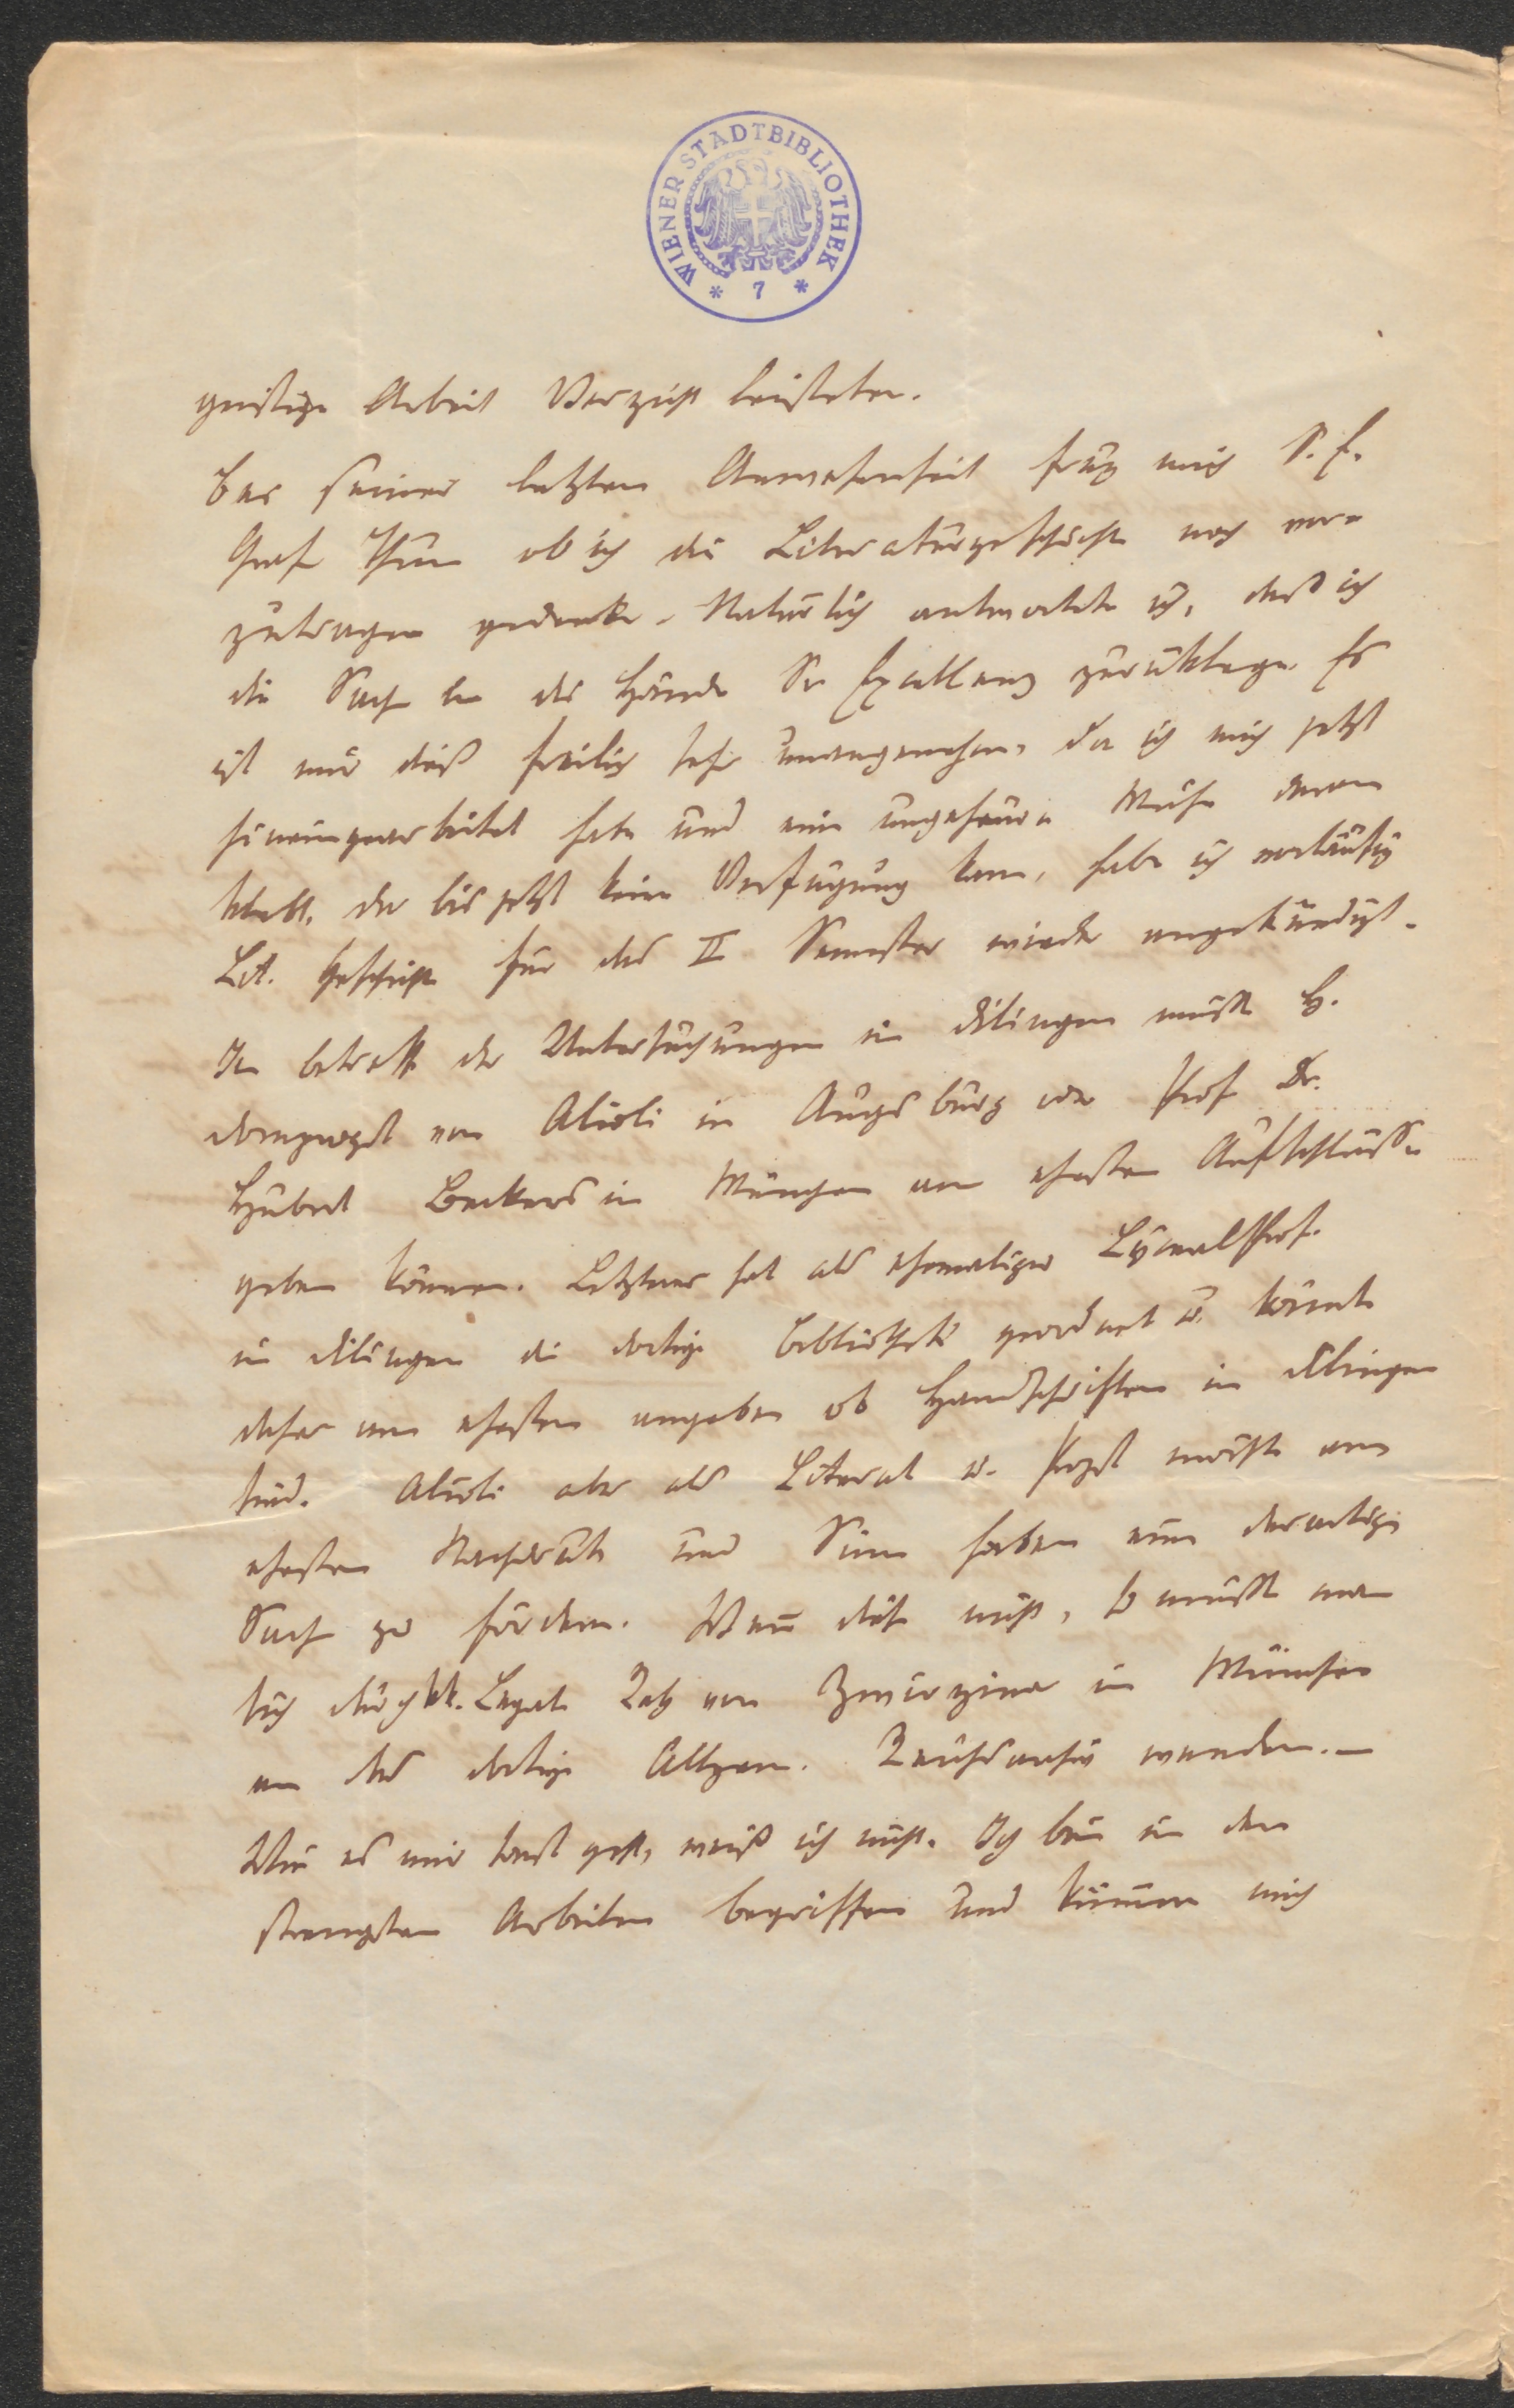 WIENER STADTBIBLIOTHEK
* 7 *
geistige Arbeit Verzicht leisteten.
Bei seiner letzten Anwesenheit frug mich S. E.
Graf Thun ob ich die Literaturgeschichte noch vor=
zutragen gedenke. Natürlich antwortete ich, daß ich
die Sache in die Hände Sr Excellenz zurücklege. Es
ist mir dieß freilich sehr unangenehm, da ich mich jetzt
hineingearbeitet habe und eine ungeheure Mühe daran
klebt. Da bis jetzt keine Verfügung kam, habe ich vorläufig
Lit. Geschichte für das II Semester wieder angekündigt.
In betreff der Untersuchungen in Dilingen müßte H.
Domprobst von Alioli in Augsburg oder Prof Dr.
Hubert Beckers in München am ehesten Aufschlüsse
geben können. Letzterer hat als ehemaliger LycealProf.
in Dilingen die dortige Bibliothek geordnet u. könnte
daher am ehesten angeben ob Handschriften in Dilingen
sind. Alioli aber als Literat u. Probst möchte am
ehesten und Sinn haben eine derartige
Sache zu fördern. Wenn dieß nicht, so müßte man
sich durch kk. Legat. Rath von Zwierzina in München
an das dortige Allgem. Reichsarchiv wenden.—
Wie es mir sonst geht, weiß ich nicht. Ich bin in den
strengsten Arbeiten begriffen und kümmere mich